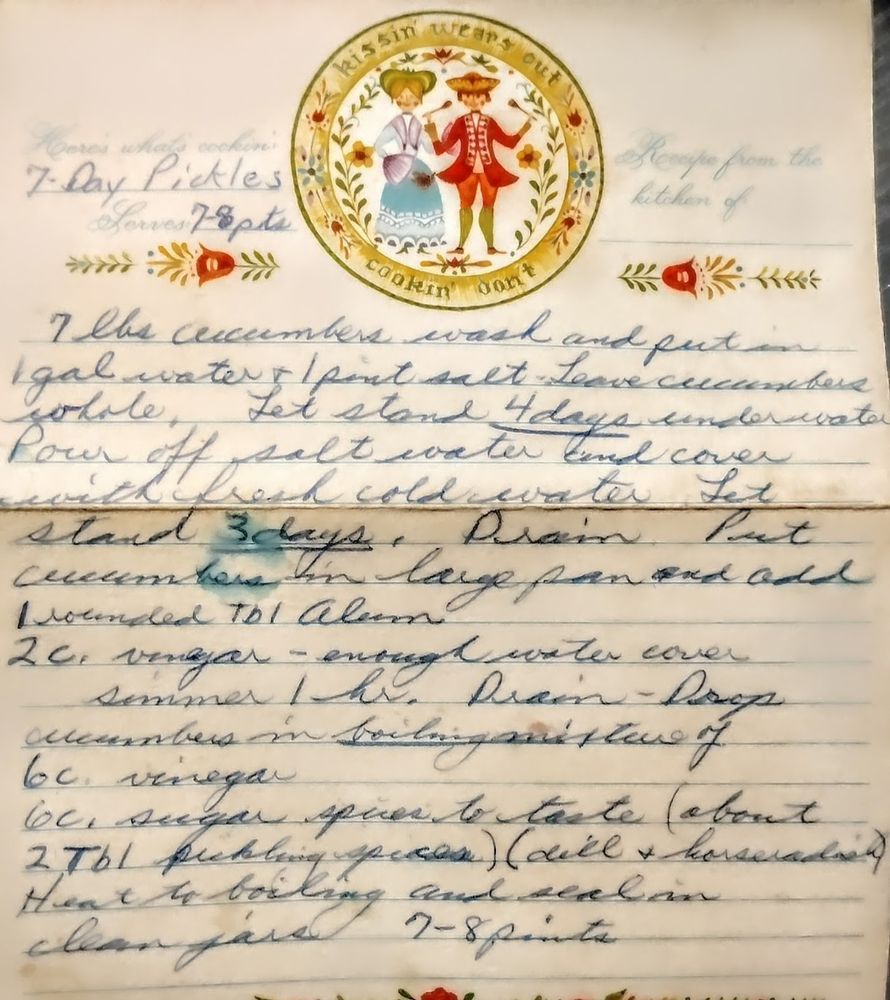 kissin' wears out
cookin' don't
Here's what's cookin':
7-Day Pickles
Serves 7-8 pts
Recipe from the
kitchen of
7 lbs cucumbers wash and put in
1 gal water + 1 pint salt - Leave cucumbers
whole. Let stand 4 days under water
Pour off salt water and cover
with fresh cold water Let
stand 3 days. Drain Put
cucumbers in large pan and add
1 rounded Tbl Alum
2 c. vinegar - enough water cover
simmer 1 hr. Drain - Drop
cucumbers in boiling mixture of
6 c. vinegar
6 c. sugar spices to taste (about
2 Tbl pickling spices) (dill + horseradish)
Heat to boiling and seal in
clean jars 7-8 pints